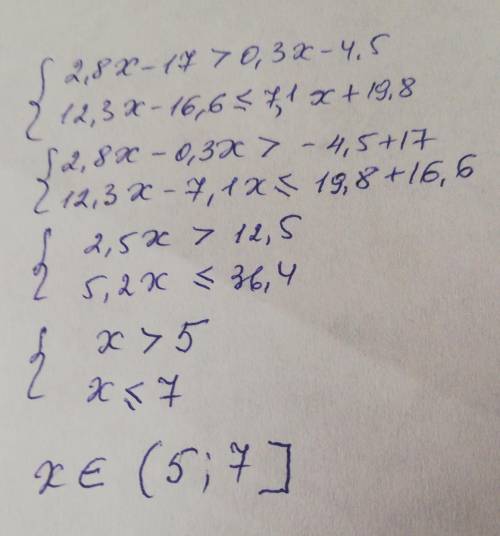 2,8x-17>0,3x-4,5
12,3x-16,6≤7,1x+19,8
2,8x-0,3x>-4,5+17
12,3x-7,1x≤19,8+16,6
2,5x>12,5
5,2x≤36,4
x>5
x≤7
x∈(5;7]